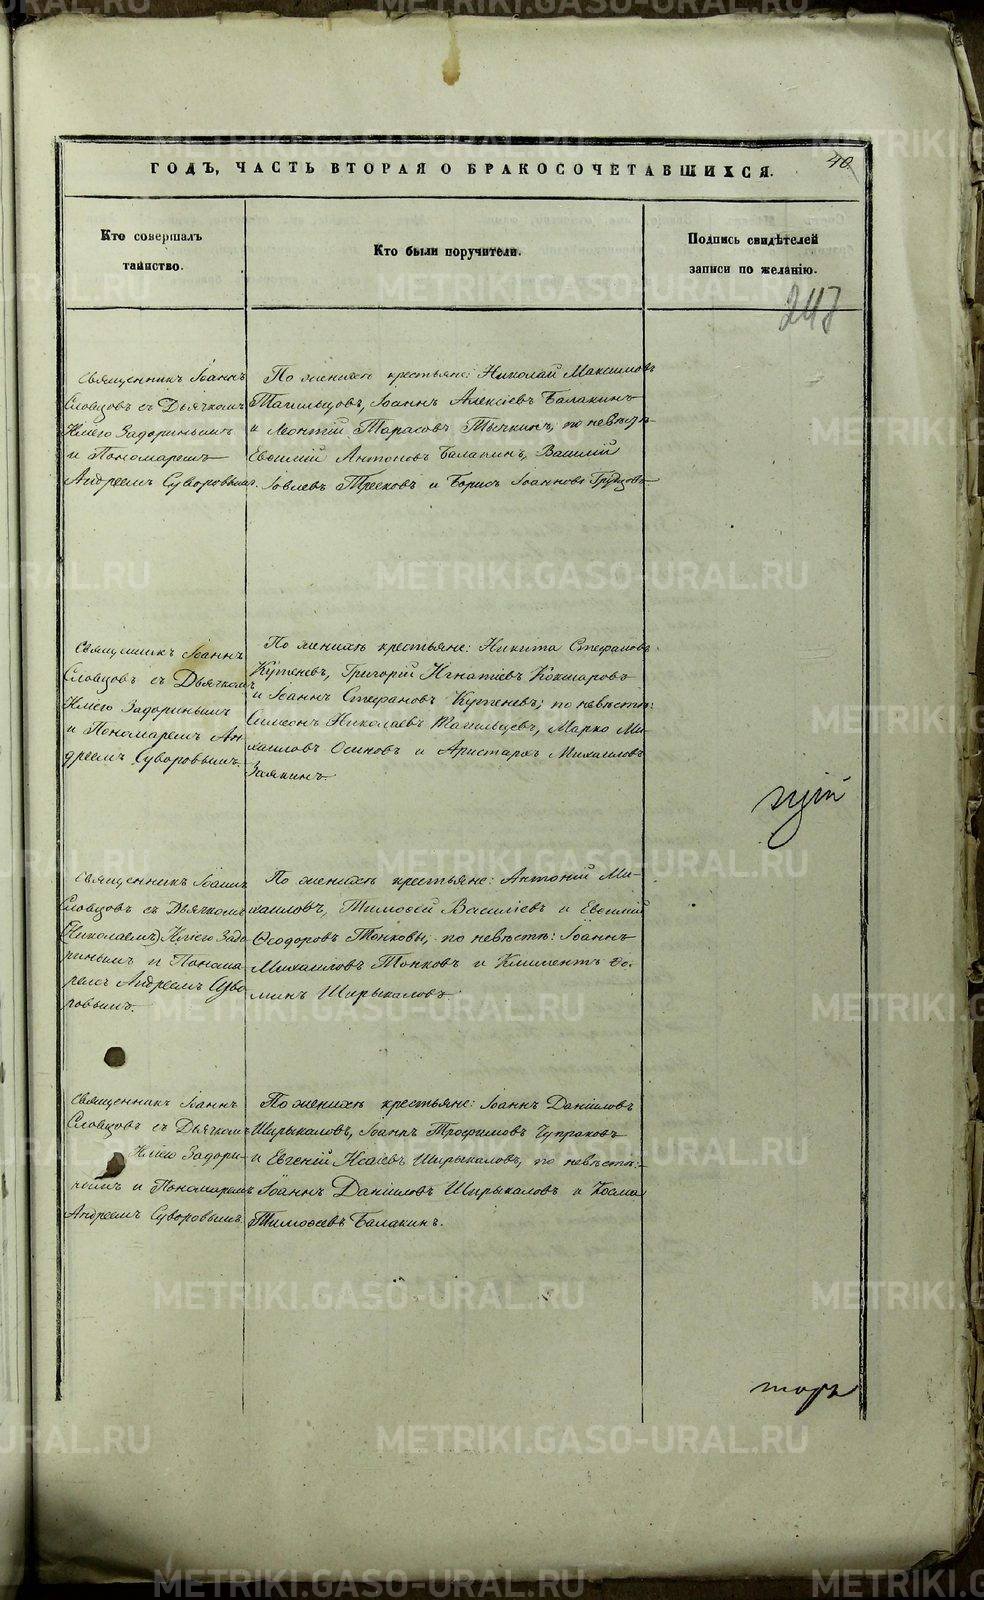 40.
ГОДЪ, ЧАСТЬ ВТОРАЯ О БРАКОСОЧЕТАВШИХСЯ.
Кто совершалъ
таинство.
Кто были поручители.
Подпись свидѣтелей
записи по желанію.
247
Священникъ Іоаннъ
Словцовъ съ Дьячкомъ
Иліею Задоринымъ
и Пономаремъ
Андреемъ Суворовымъ.
По женихѣ крестьяне: Николай Максимовъ
Тагильцовъ, Іоаннъ Алексіевъ Балакинъ
и Леонтій Тарасовъ Тычкинъ; по невѣстѣ
Евѳимій Антоновъ Балакинъ, Василій
Іовлевъ Тресковъ и Борисъ Іоанновъ
Священникъ Іоаннъ
Словцовъ съ Дьячкомъ
Иліею Задоринымъ
и Пономаремъ Ан-
дреемъ Суворовымъ.
По женихѣ крестьяне: Никита Стефановъ
Кутеневъ, Григорій Игнатіевъ Кокшаровъ
и Іоаннъ Стефановъ Кутеневъ; по невѣстѣ:
Симеонъ Николаевъ Тагильцевъ, Марко Ми-
хаиловъ Осиновъ и Аристархъ Михаиловъ
Заякинъ.
щій
Священникъ Іоаннъ
Словцовъ съ Дьячкомъ
(Николаемъ) Иліею Задо-
ринымъ и Понома-
ремъ Андреемъ Суво-
ровымъ.
По женихѣ крестьяне: Антоній Ми-
хаиловъ, Тимоѳей Василіевъ и Евѳимій
Ѳеодоровъ Тонковы; по невѣстѣ: Іоаннъ
Михаиловъ Тонковъ и Климентъ Ѳо-
минъ Ширыкаловъ.
Священникъ Іоаннъ
Словцовъ съ Дьячкомъ
Иліею Задори-
нымъ и Пономаремъ
Андреемъ Суворовымъ.
По женихѣ крестьяне: Іоаннъ Даніиловъ
Ширыкаловъ, Іоаннъ Трофимовъ Чупраковъ
и Евгеній Исаіевъ Ширыкаловъ, по невѣстѣ:
Іоаннъ Даніиловъ Ширыкаловъ и Косма
Тимоѳеевъ Балакинъ.
торъ
METRIKI.GASO-URAL.RU